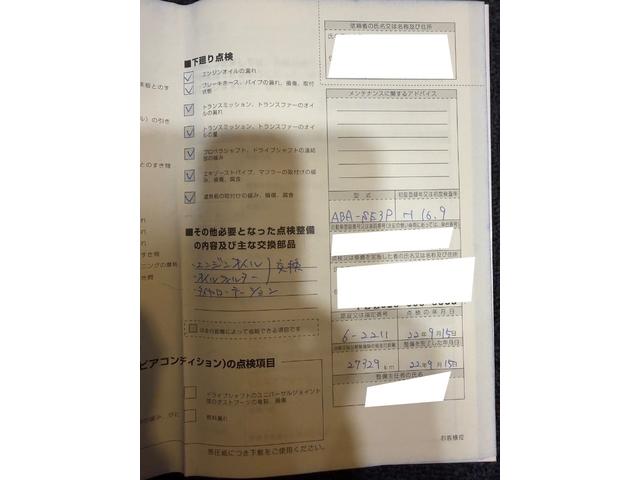 依頼者の氏名又は名称及び住所
■下廻り点検
エンジンオイルの漏れ
ブレーキホース、パイプの漏れ、損傷、取付
状態
メンテナンスに関するアドバイス
トランスミッション、トランスファーのオイ
ルの漏れ
トランスミッション、トランスファーのオイ
ルの量
プロペラシャフト、ドライブシャフトの連結
部の緩み
エキゾーストパイプ、マフラーの取付けの緩
み、損傷、腐食
遮熱板の取付けの緩み、損傷、腐食
型式
初度登録年又は初度検査年
ABA-S53P
H16.9
■その他必要となった点検整備
の内容及び主な交換部品
・エンジンオイル
・オイルフィルター
交換
・タイヤローテーション
は走行距離によって省略できる項目です
認証又は指定番号
点検の年月日
6-2211
22年9月15日
整備を完了した年月日
27329 km
22年9月15日
整備主任者の氏名
ピアコンディション)の点検項目
ドライブシャフトのユニバーサルジョイント
部のダストブーツの亀裂、損傷
燃料漏れ
お客様控
感圧紙につき下敷をご使用ください。